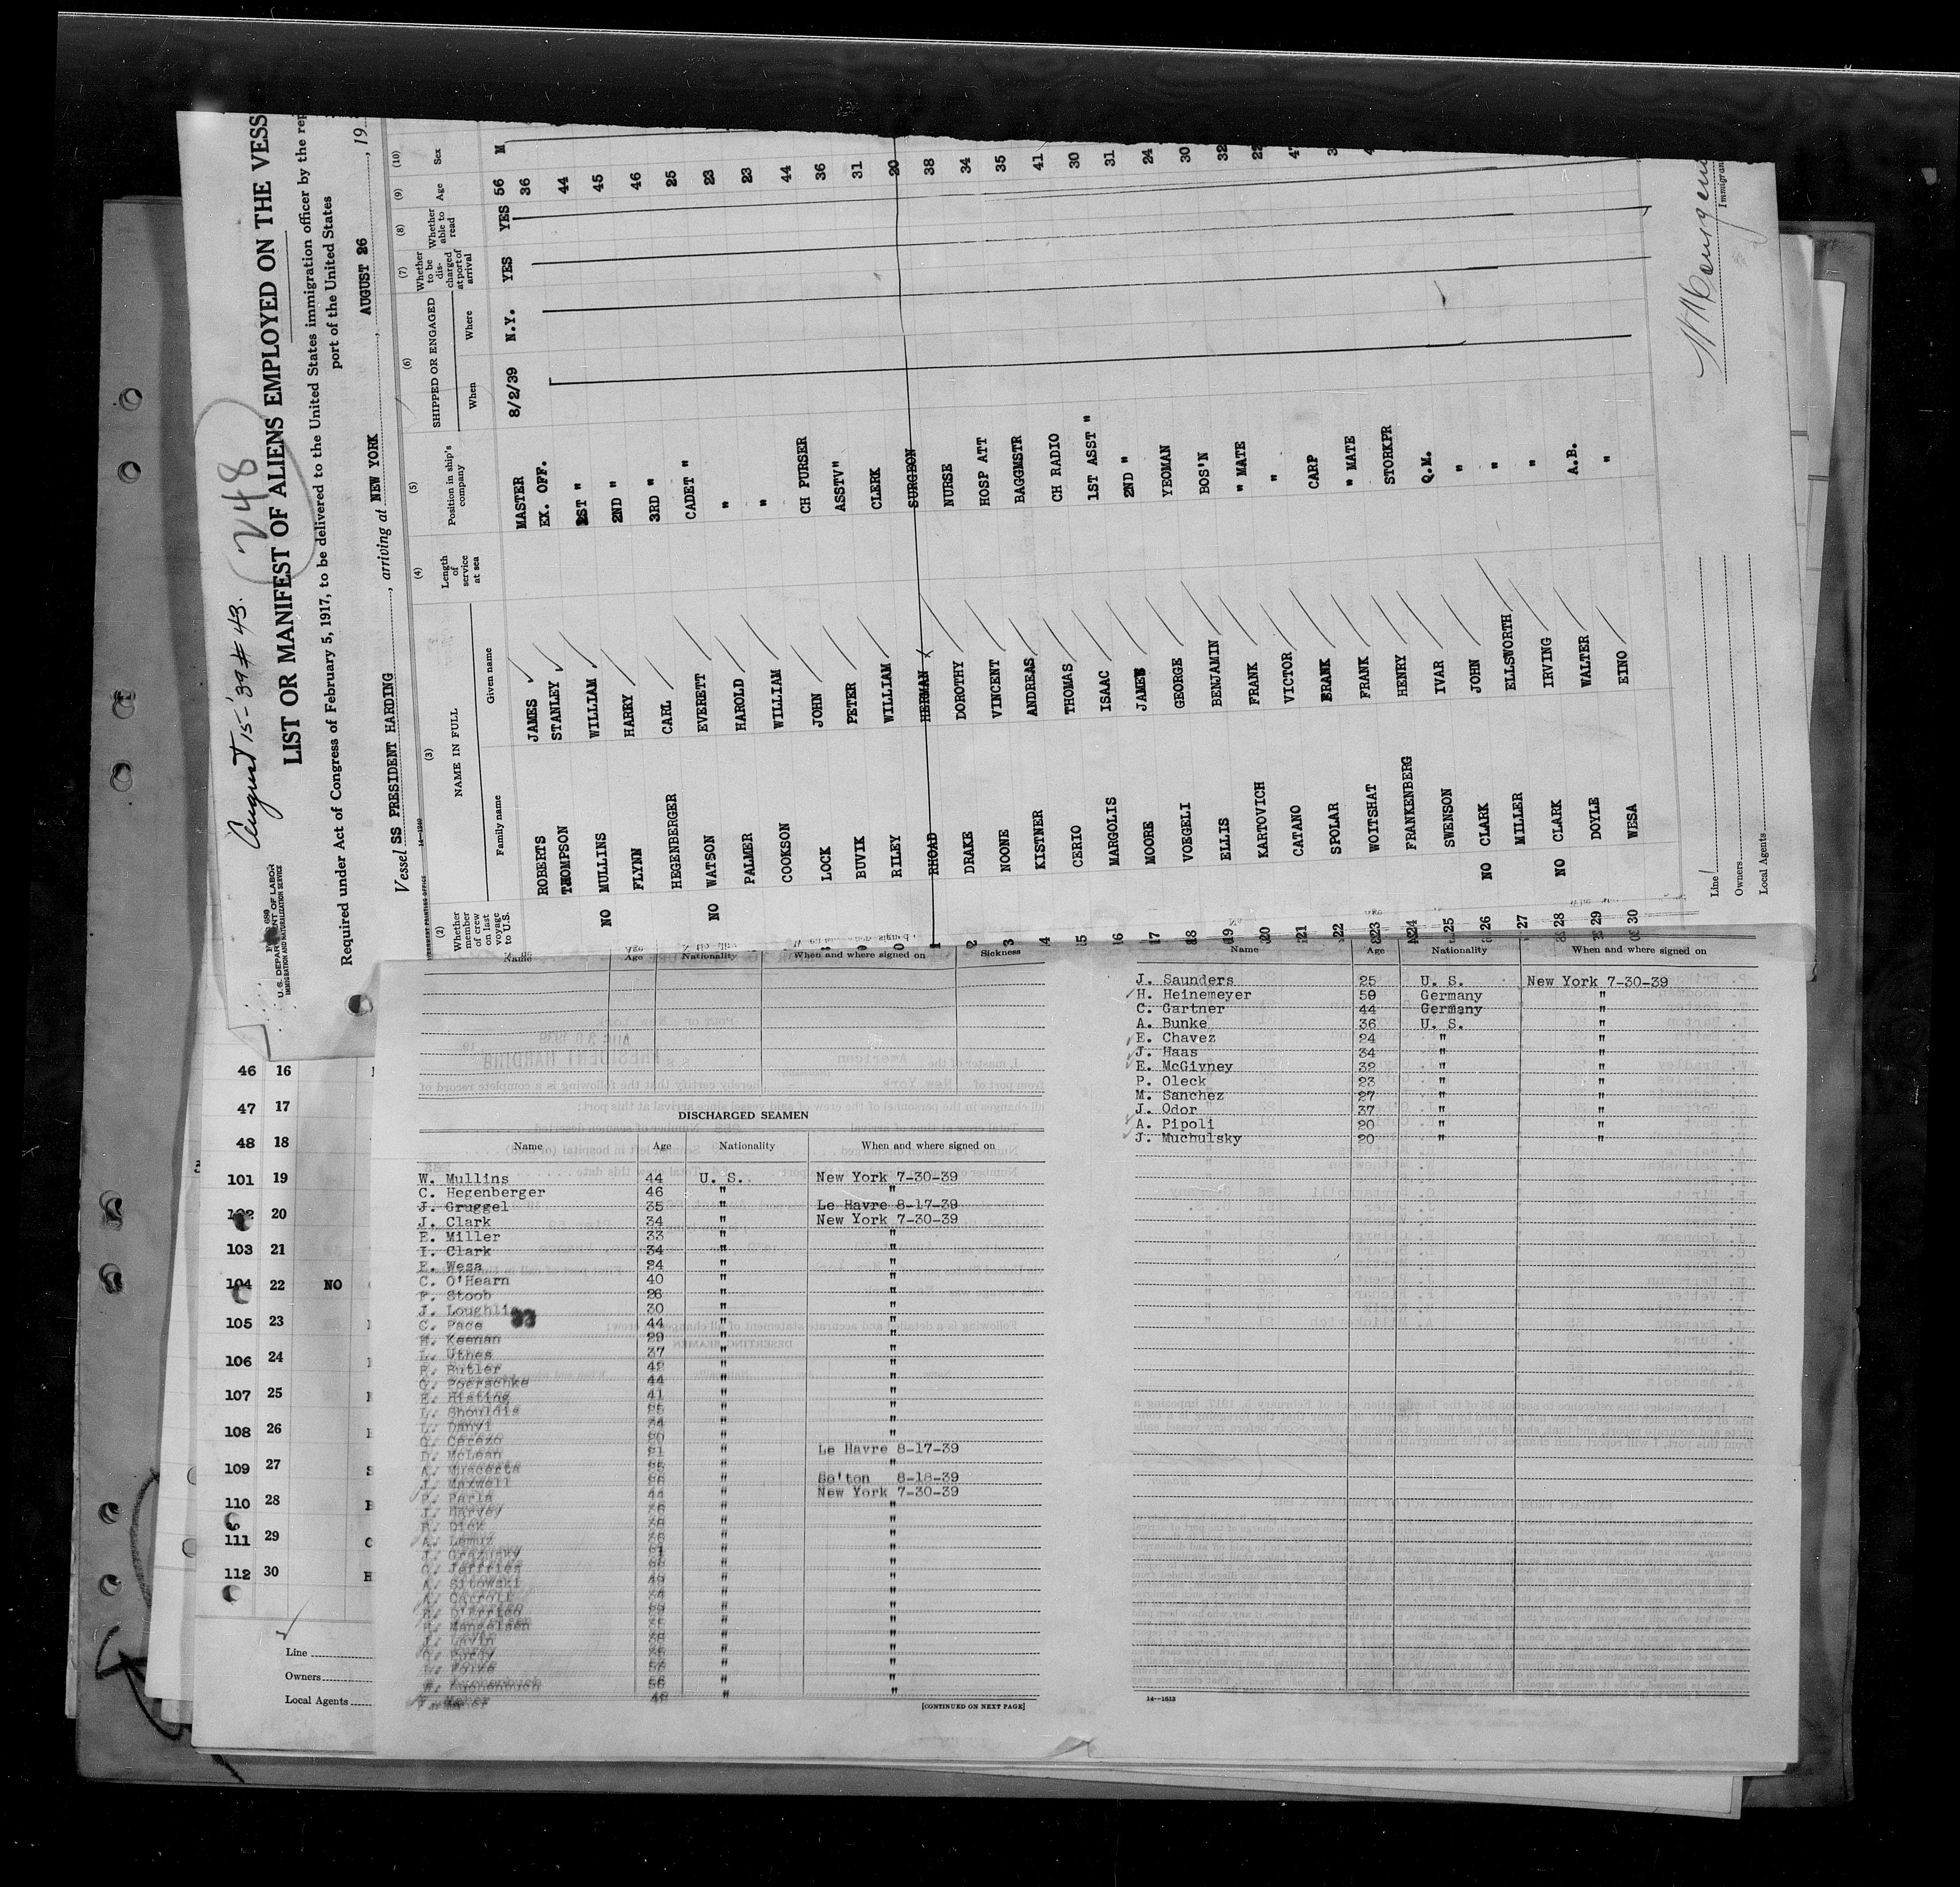 August 15-'39 # 43. 248
U. S. DEPARTMENT OF LABOR
IMMIGRATION AND NATURALIZATION SERVICE
LIST OR MANIFEST OF ALIENS EMPLOYED ON THE VESS
Required under Act of Congress of February 5, 1917, to be delivered to the United States immigration officer by the rep
port of the United States
Vessel SS PRESIDENT HARDING, arriving at NEW YORK, AUGUST 26, 19
(2) (3) (4) (5) (6) (7) (8) (9) (10)
Whether member of crew on last voyage to U.S. NAME IN FULL Family name Given name Length of service at sea Position in ship's company SHIPPED OR ENGAGED When Where Whether to be discharged at port of arrival Whether able to read Age Sex
ROBERTS JAMES MASTER 8/2/39 N.Y. YES YES 56 M
THOMPSON STANLEY EX. OFF. 36
NO MULLINS WILLIAM 1ST " 44
FLYNN HARRY 2ND " 45
HEGENBERGER CARL 3RD " 46
NO WATSON EVERETT CADET " 25
PALMER HAROLD " 23
COOKSON WILLIAM " 23
LOCK JOHN CH PURSER 44
BUVIK PETER ASSTV" 36
RILEY WILLIAM CLERK 31
RHOAD HERMAN SURGEON 20
DRAKE DOROTHY NURSE 38
NOONE VINCENT HOSP ATT 34
KISTNER ANDREAS BAGGMSTR 35
CERIO THOMAS CH RADIO 41
MARGOLIS ISAAC 1ST ASST " 30
MOORE JAMES 2ND " 31
VOEGELI GEORGE YEOMAN 24
ELLIS BENJAMIN BOS'N 30
KARTOVICH FRANK " MATE 32
CATANO VICTOR " 22
SPOLAR FRANK CARP
WOITSHAT FRANK " MATE
FRANKENBERG HENRY STORKPR
SWENSON IVAR Q.M.
NO CLARK JOHN "
MILLER ELLSWORTH "
NO CLARK IRVING "
DOYLE WALTER A.B.
WESA EINO "
Line
Owners
Local Agents
Immigran
46 16
47 17
48 18
101 19
102 20
103 21
104 22 NO
105 23
106 24
107 25
108 26
109 27
110 28
111 29
112 30
Line
Owners
Local Agents
Name Age Nationality When and where signed on Sickness
DISCHARGED SEAMEN
Name Age Nationality When and where signed on
W. Mullins 44 U. S. New York 7-30-39
C. Hegenberger 46 " "
J. Gruggel 35 " Le Havre 8-17-39
J. Clark 34 " New York 7-30-39
E. Miller 33 " "
I. Clark 34 " "
E. Wesa 24 " "
C. O'Hearn 40 " "
F. Stoob 26 " "
J. Loughlin 30 " "
C. Pace 44 " "
M. Keenan 29 " "
L. Uthes 37 " "
R. Butler 42 " "
O. Poerschke 44 " "
E. Histing 41 " "
L. Shouldis 25 " "
L. Danyi 34 " "
G. Cerezo "
D. McLean " Le Havre 8-17-39
A. Muscerta " "
J. Maxwell " So'ton 8-18-39
P. Parla 44 " New York 7-30-39
Harvey " "
Dick " "
A. Lemuz " "
J. " "
C. Jeffries " "
A. Sitowski " "
Carroll " "
D'Arrigo " "
Mangelsen " "
Lavin " "
Purdy " "
" "
" "
" "
[CONTINUED ON NEXT PAGE]
Name Age Nationality When and where signed on
J. Saunders 25 U. S. New York 7-30-39
H. Heinemeyer 59 Germany "
C. Gartner 44 Germany "
A. Bunke 36 U. S. "
E. Chavez 24 " "
J. Haas 34 " "
E. McGivney 32 " "
P. Oleck 23 " "
M. Sanchez 27 " "
J. Odor 37 " "
A. Pipoli 20 " "
J. Muchulsky 20 " "
14—1613